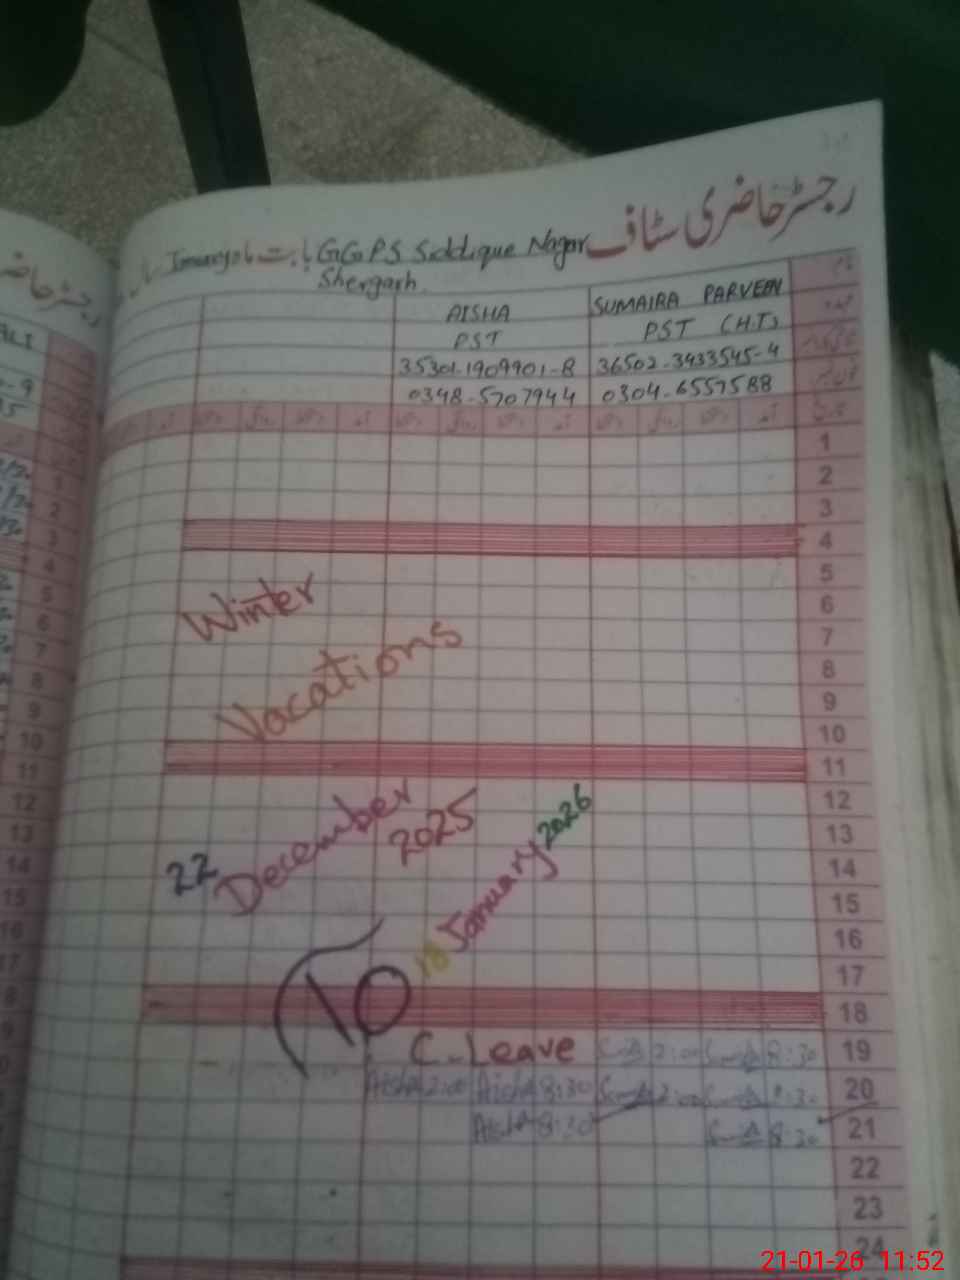 رجسٹر حاضری سٹاف
بابت ماہ January GGPS Siddique Nagar
Shergarh
AISHA
SUMAIRA PARVEEN
PST
PST (H.T)
35301-1909901-8
36502-3433545-4
0348-5707944
0304-6557588
1
2
3
4
5
6
Winter
7
Vacations
8
9
10
11
12
13
22 December 2025
14
15
To
18 January 2026
16
17
18
C-Leave 2:00 8:30 19
Aisha 2:00 Aisha 8:30 2:00 8:30 20
Aisha 8:30 8:30 21
22
23
24
رجسٹر حاضر
ALI
1
2
3
4
5
6
7
8
9
10
11
12
13
14
15
16
17
21-01-26 11:52